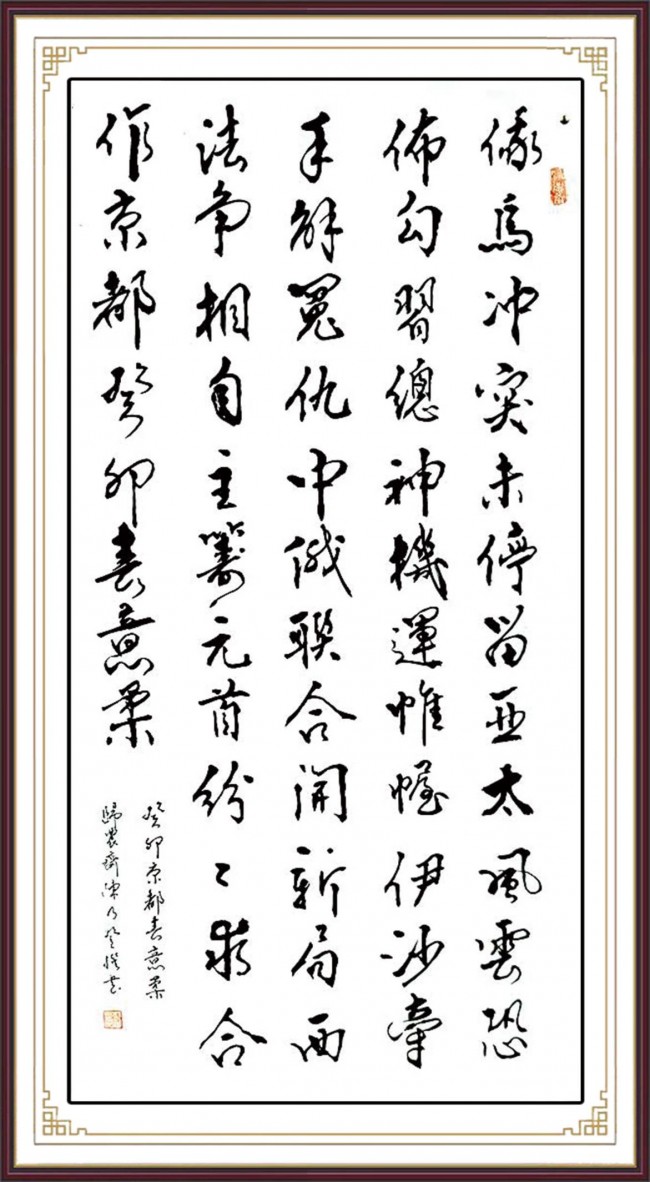 俄烏冲突未停留亞太風雲恐
佈勾習總神機運帷幄伊沙牽
手解冤仇中俄聯合開新局西
法争相自主籌元首纷〻求合
作京都癸卯春意柔
癸卯京都春意柔
歸農齋陳乃登撰書